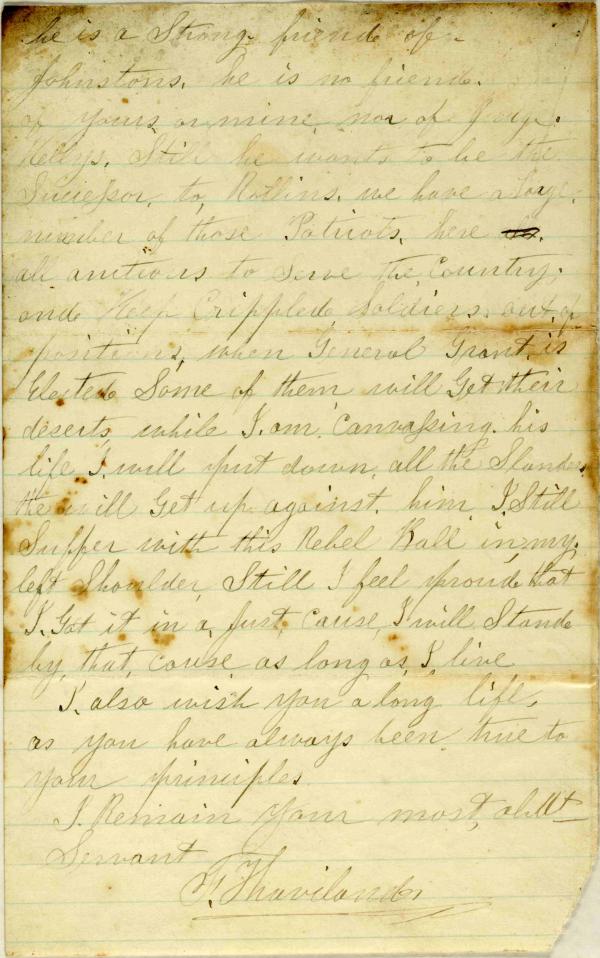 he is a Strong friend of
Johnstons. he is no friend.
of yours or mine, nor of Judge.
Kellys. Still he wants to be the
Successor, to, Rollins. we have a large,
number of those Patriots, here
all anitious to serve the, Country.
and Keep Crippled Soldiers. out, of
positions, when General Grant, is
Elected Some of them will Get their
deserts, while I. am. Canvassing. his
life I. will put down. all the Slanders
he will Get up against. him I. Still
Suffer with this Rebel Ball in, my.
left Shoulder, Still I feel proud that
I. Got it in a, Just, Cause, I will Stand
by, that, cause as long as, I, live
I. also wish you a long life,
as you have always been true to
your principles
I. Remain your most, obdt
Servant